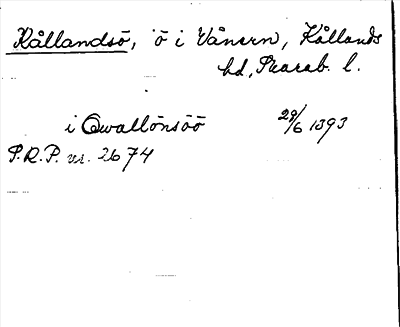 Kållandsö, ö i Vänern, Kållands
hd, Skarab. l.
i Qwallönsöö 29/6 1393
S.R.P. nr. 2674